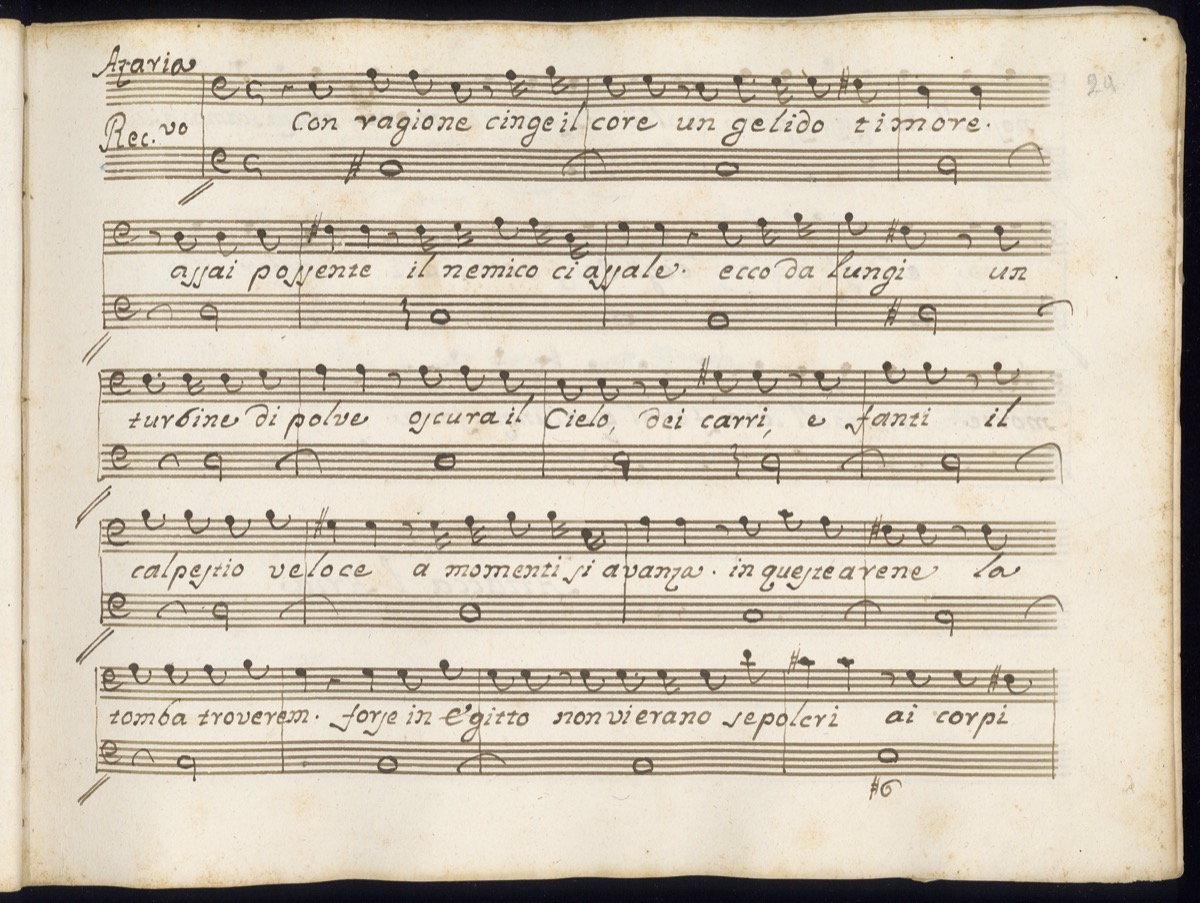 Azaria
Rec.vo
Con ragione cinge il core un gelido timore.
assai possente il nemico ci assale. ecco da lungi un
turbine di polve oscura il Cielo, dei carri, e fanti il
calpestio veloce a momenti si avanza. in queste arene la
tomba troverem. forse in Egitto non vi erano sepolcri ai corpi
#6